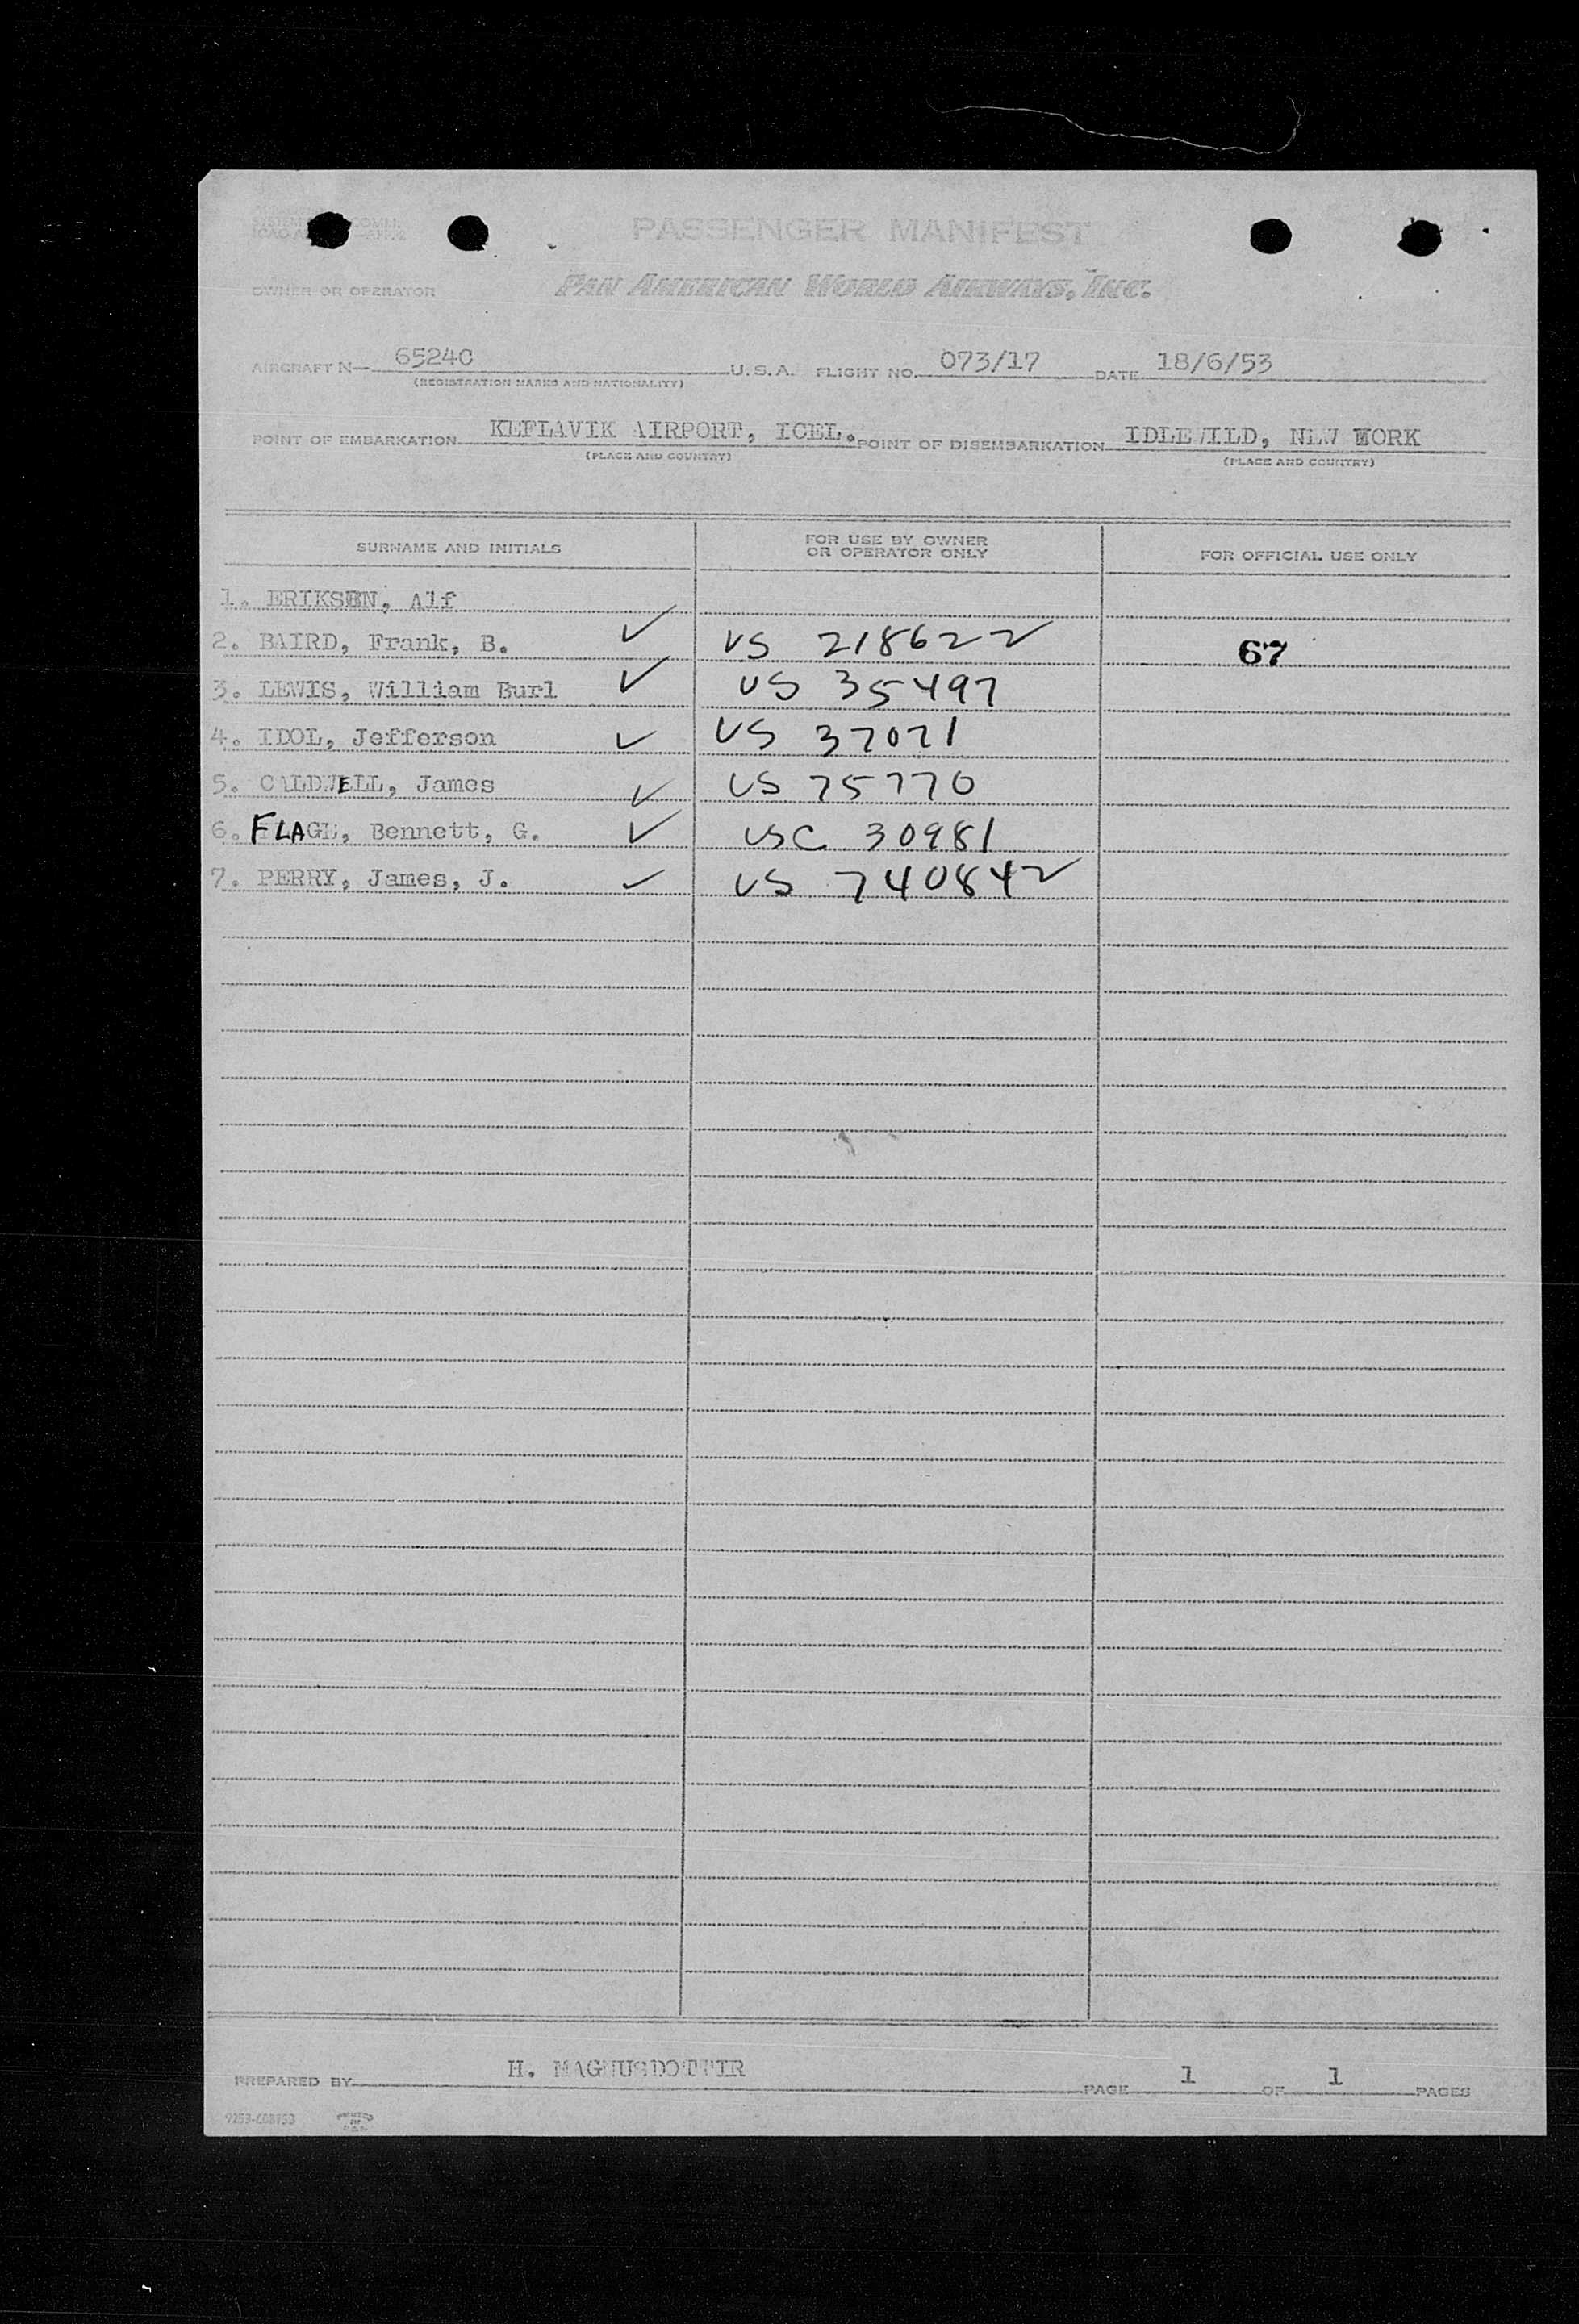 PASSENGER MANIFEST
OWNER OR OPERATOR PAN AMERICAN WORLD AIRWAYS, INC.
AIRCRAFT N— 65240 U.S.A. FLIGHT NO. 073/17 DATE 18/6/53
(REGISTRATION MARKS AND NATIONALITY)
POINT OF EMBARKATION KEFLAVIK AIRPORT, ICEL. POINT OF DISEMBARKATION IDLEWILD, NEW YORK
(PLACE AND COUNTRY) (PLACE AND COUNTRY)
SURNAME AND INITIALS FOR USE BY OWNER OR OPERATOR ONLY FOR OFFICIAL USE ONLY
1. ERIKSEN, Alf
2. BAIRD, Frank, B. ✓ US 218622 67
3. LEWIS, William Burl ✓ US 35497
4. IDOL, Jefferson ✓ US 37071
5. CALDWELL, James ✓ US 75770
6. FLAGE, Bennett, G. ✓ USC 30981
7. PERRY, James, J. ✓ US 740842
PREPARED BY H. MAGNUSDOTTIR PAGE 1 OF 1 PAGES
PRINTED IN U.S.A.